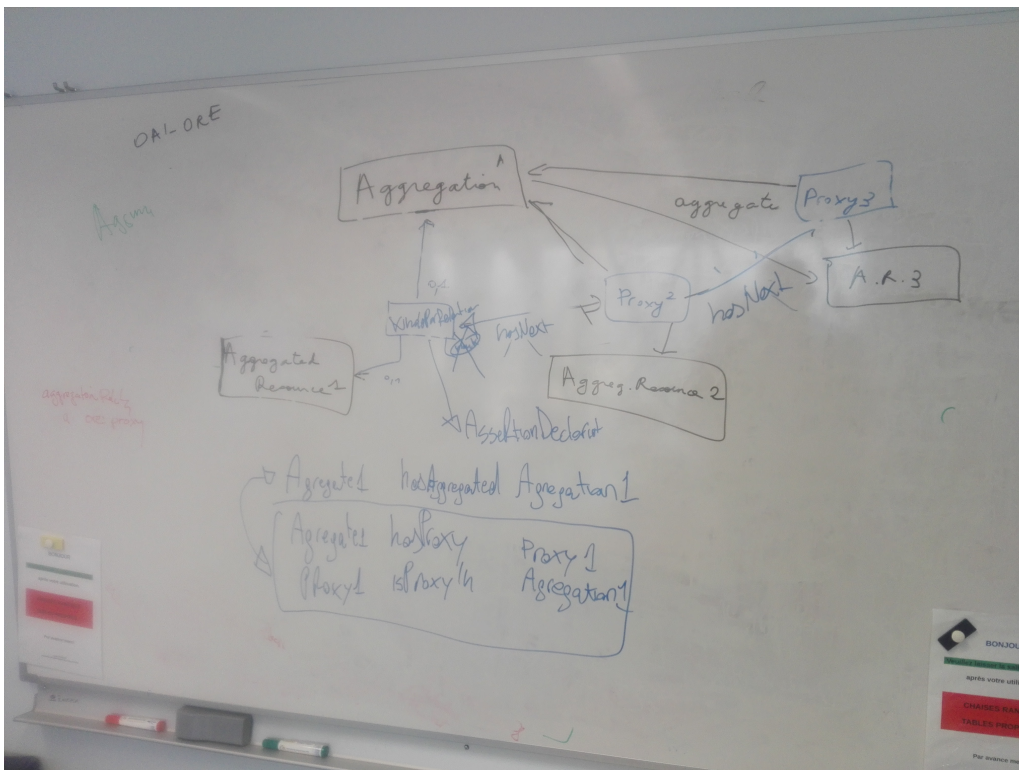 OAI-ORE
Aggregation
A
aggregate
Proxy3
A.R.3
Proxy2
hasNext
hasNext
Aggregated
Resource1
Aggreg. Resource 2
AssertionDeclarat
Agregate1 hasAggregated Agregation1
Agregate1 hasProxy Proxy1
Proxy1 isProxyIn Agregation1
BONJOU
après votre utili
CHAISES RAN
TABLES PROP
Par avance me